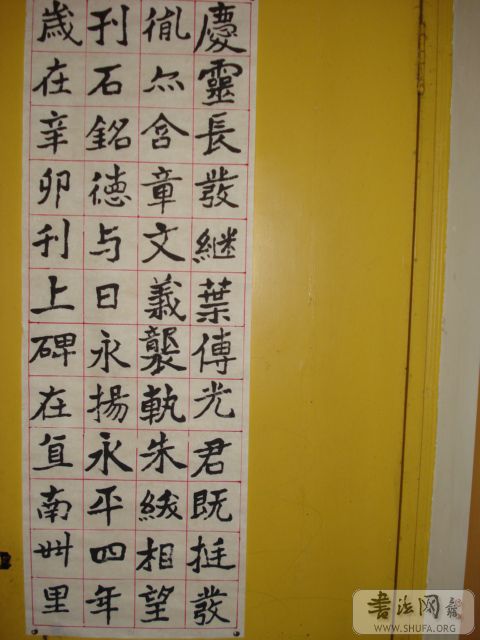 慶靈長發継葉傳光君既挺發
胤尒含章文義襲執朱紱相望
刊石銘德与日永揚永平四年
歲在辛卯刊上碑在直南卅里
書法网
WWW.SHUFA.ORG